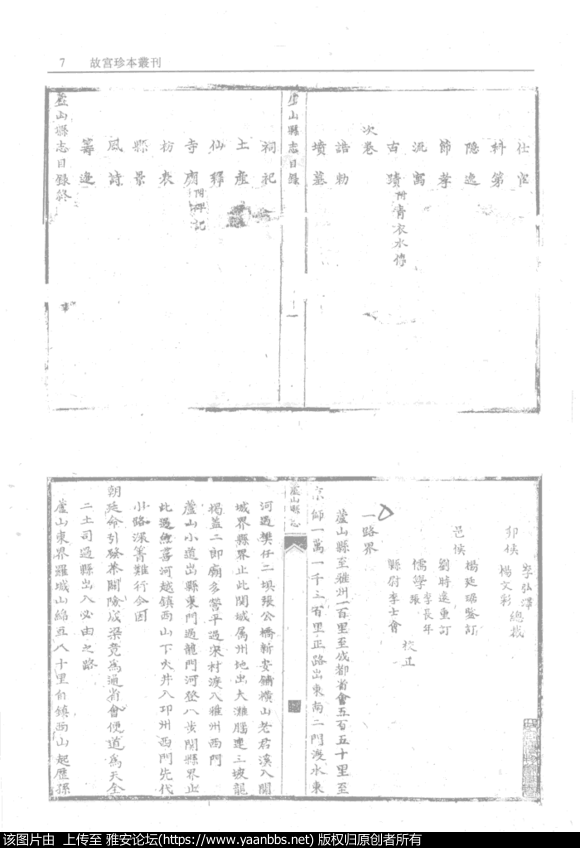 7 故宫珍本叢刊
仕宦
科第
隐逸
節孝
流寓
古蹟 附青衣水悞
次卷
誥勅
墳墓
盧山縣志目錄
一
祠祀
土產
仙釋
寺廟 附碑記
坊表
縣景
風詩
籌邊
蘆山縣志目錄終
李弘澤
卯候 總裁
楊文彩
楊廷琚鑒訂
邑候
劉時遠重訂
儒學 李長年
張
校正
縣尉李士會
一路界
蘆山縣至雅州一百里至成都省會五百五十里至
京師一萬一千三百里正路出東南二門渡水東
蘆山縣志
河過樊仔二壩張公橋新安鋪橫山老君溪入關
城界縣界止此関城属州地出大灘腦連三坡龍
楊蓋二郎廟多營平過宋村渡入雅州西門
蘆山小道出縣東門過龍門河登八步関縣界止
此過魚喜河越鎮西山下大井入邛州西門先代
小路深箐難行今因
朝廷命引發茶開險成梁竟為通省會便道為天全
二土司過縣出入必由之路
蘆山東界羅城山綿亘八十里自鎮西山起歷孫
该图片由 上传至 雅安论坛(https://www.yaanbbs.net) 版权归原创者所有